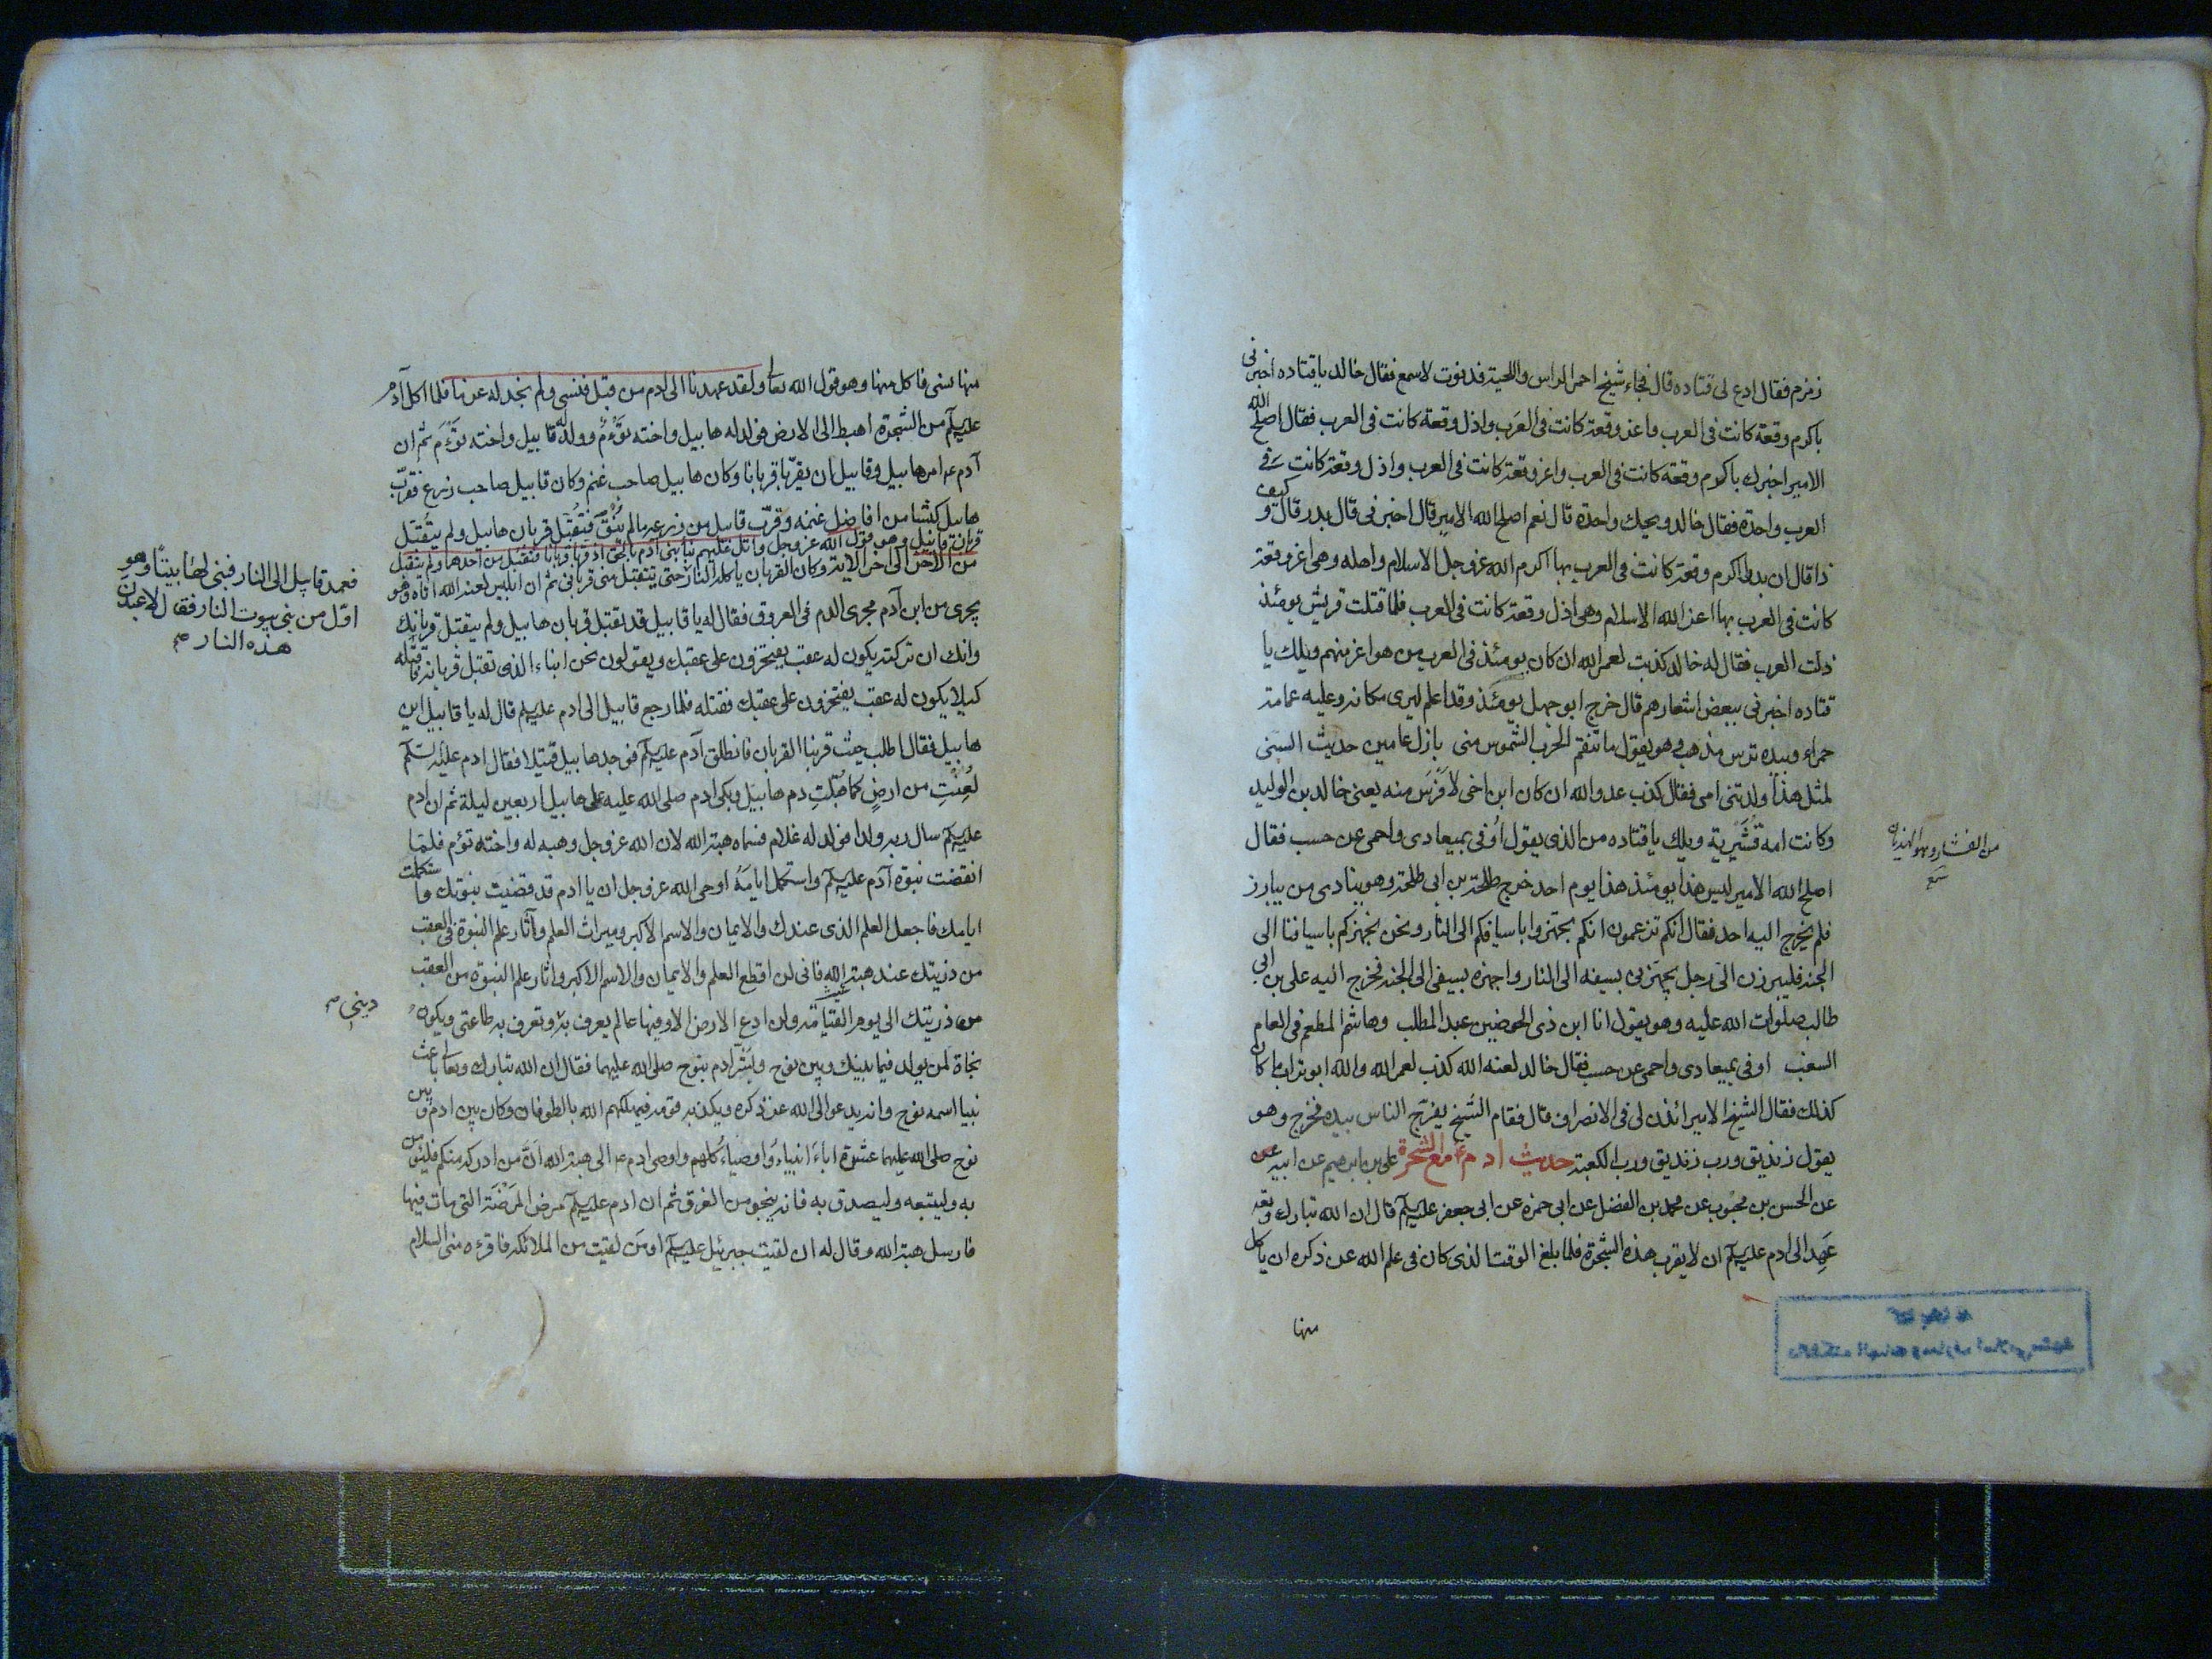 زمزم فقال ادع لى قتاده قال فجاء شيخ احمر الراس واللحية فدنوت لاسمع فقال خالد يا قتاده اخبرنى
باكرم وقعة كانت فى العرب واعز وقعة كانت فى العرب واذل وقعة كانت فى العرب فقال اصلح الله
الامير اخبرك باكرم وقعة كانت فى العرب واعز وقعة كانت فى العرب واذل وقعة كانت فى
العرب واحدة فقال خالد ويحك واحدة قال نعم اصلح الله الامير قال اخبرنى قال بدر قال وكيف
ذا قال ان بدرا اكرم وقعة كانت فى العرب بها اكرم الله عز وجل الاسلام واهله وهى اعز وقعة
كانت فى العرب بها اعز الله الاسلام وهى اذل وقعة كانت فى العرب فلما قتلت قريش يومئذ
ذلت العرب فقال له خالد كذبت لعمر الله ان كان يومئذ فى العرب من هو اعز منهم ويلك يا
قتاده اخبرنى ببعض اشعارهم قال خرج ابو جهل يومئذ وقد اعلم ليرى مكانه وعليه عمامة
حمراء وبيده ترس مذهب وهو يقول ما تنقم الحرب الشموس منى بازل عامين حديث السنى
لمثل هذا ولدتنى امى فقال كذب عدو الله ان كان ابن اخى لافرس منه يعنى خالد بن الوليد
وكانت امه قشيرية ويلك يا قتاده من الذى يقول اوفى بميعادى واحمى عن حسب فقال
اصلح الله الامير ليس هذا يومئذ هذا يوم احد خرج طلحة بن ابى طلحة وهو ينادى من يبارز
فلم يخرج اليه احد فقال انكم تزعمون انكم تجهزوا باسيافكم الى النار ونحن نجهزكم باسيافنا الى
الجنة فليبرزن الى رجل يجهزنى بسيفه الى النار واجهزه بسيفى الى الجنة فخرج اليه على بن ابى
طالب صلوات الله عليه وهو يقول انا ابن ذى الحوضين عبد المطلب وهاشم المطعم فى العام
السغب اوفى بميعادى واحمى عن حسب فقال خالد لعنه الله كذب لعمر الله والله ابو تراب ما كان
كذلك فقال الشيخ الامير ائذن لى فى الانصراف قال فقام الشيخ يفرج الناس بيده فخرج وهو
يقول زنديق ورب زنديق ورب الكعبة حديث ادم ع مع الشجرة على بن ابرهيم عن ابيه
عن الحسن بن محبوب عن محمد بن الفضل عن ابى حمزه عن ابى جعفر عليه السلام قال ان الله تبارك وتع
عهد الى ادم عليه السلام ان لا يقرب هذه الشجرة فلما بلغ الوقت الذى كان فى علم الله عز ذكره ان ياكل
منها
منها نسى فاكل منها وهو قول الله تعالى ولقد عهدنا الى ادم من قبل فنسى ولم نجد له عزما فلما اكل آدم
عليه السلام من الشجرة اهبط الى الارض فولد له هابيل واخته توءم وولد له قابيل واخته توءم ثم ان
آدم ع امر هابيل وقابيل ان يقربا قربانا وكان هابيل صاحب غنم وكان قابيل صاحب زرع فقرب
هابيل كبشا من افاضل غنمه وقرب قابيل من زرعه مالم ينق فتقبل قربان هابيل ولم يتقبل
قربان قابيل وهو قول الله عز وجل واتل عليهم نبا ابنى ادم بالحق اذ قربا قربانا فتقبل من احدهما ولم يتقبل
من الاخر الى اخر الاية وكان القربان ياكله النار
فعمد قابيل الى النار فبنى لها بيتا وهو
اول من بنى بيوت النار فقال لاعبدن
هذه النار
حتى يتقبل منى قربانى ثم ان ابليس لعنه الله اتاه وهو
يجرى من ابن آدم مجرى الدم فى العروق فقال له يا قابيل قد تقبل قربان هابيل ولم يتقبل قربانك
وانك ان تركته يكون له عقب يفتخرون على عقبك ويقولون نحن ابناء الذى تقبل قربانه فاقتله
كيلا يكون له عقب يفتخرون على عقبك فقتله فلما رجع قابيل الى ادم عليه السلام قال له يا قابيل اين
هابيل فقال اطلب حيث قربنا القربان فانطلق آدم عليه السلام فوجد هابيل قتيلا فقال ادم عليه السلام
لعنت من ارض كما قبلت دم هابيل وبكى ادم صلى الله عليه على هابيل اربعين ليلة ثم ان ادم
عليه السلام سال ربه ولدا فولد له غلام فسماه هبة الله لان الله عز وجل وهبه له واخته توءم فلما
انقضت نبوة آدم عليه السلام واستكمل ايامه اوحى الله عز وجل ان يا ادم قد قضيت نبوتك واستكملت
ايامك فاجعل العلم الذى عندك والايمان والاسم الاكبر وميراث العلم وآثار علم النبوة فى العقب
من ذريتك عند هبة الله فانى لن اقطع العلم والايمان والاسم الاكبر واثار علم النبوة من العقب
من ذريتك الى يوم القيامة ولن ادع الارض الا وفيها عالم يعرف به دينى وتعرف به طاعتى ويكون
نجاة لمن يولد فيما بينك وبين نوح وبشر آدم بنوح صلى الله عليهما فقال ان الله تبارك وتعالى باعث
نبيا اسمه نوح وانه يدعو الى الله عز ذكره ويكذبه قومه فيهلكهم الله بالطوفان وكان بين ادم وبين
نوح صلى الله عليهما عشرة اباء انبياء واوصياء كلهم واوصى ادم ع الى هبة الله ان من ادركه منكم فليؤمن
به وليتبعه وليصدق به فانه ينجو من الغرق ثم ان ادم عليه السلام مرض المرضة التى مات فيها
فارسل هبة الله وقال له ان لقيت جبرئيل عليه السلام او من لقيت من الملائكة فاقرءه منى السلام